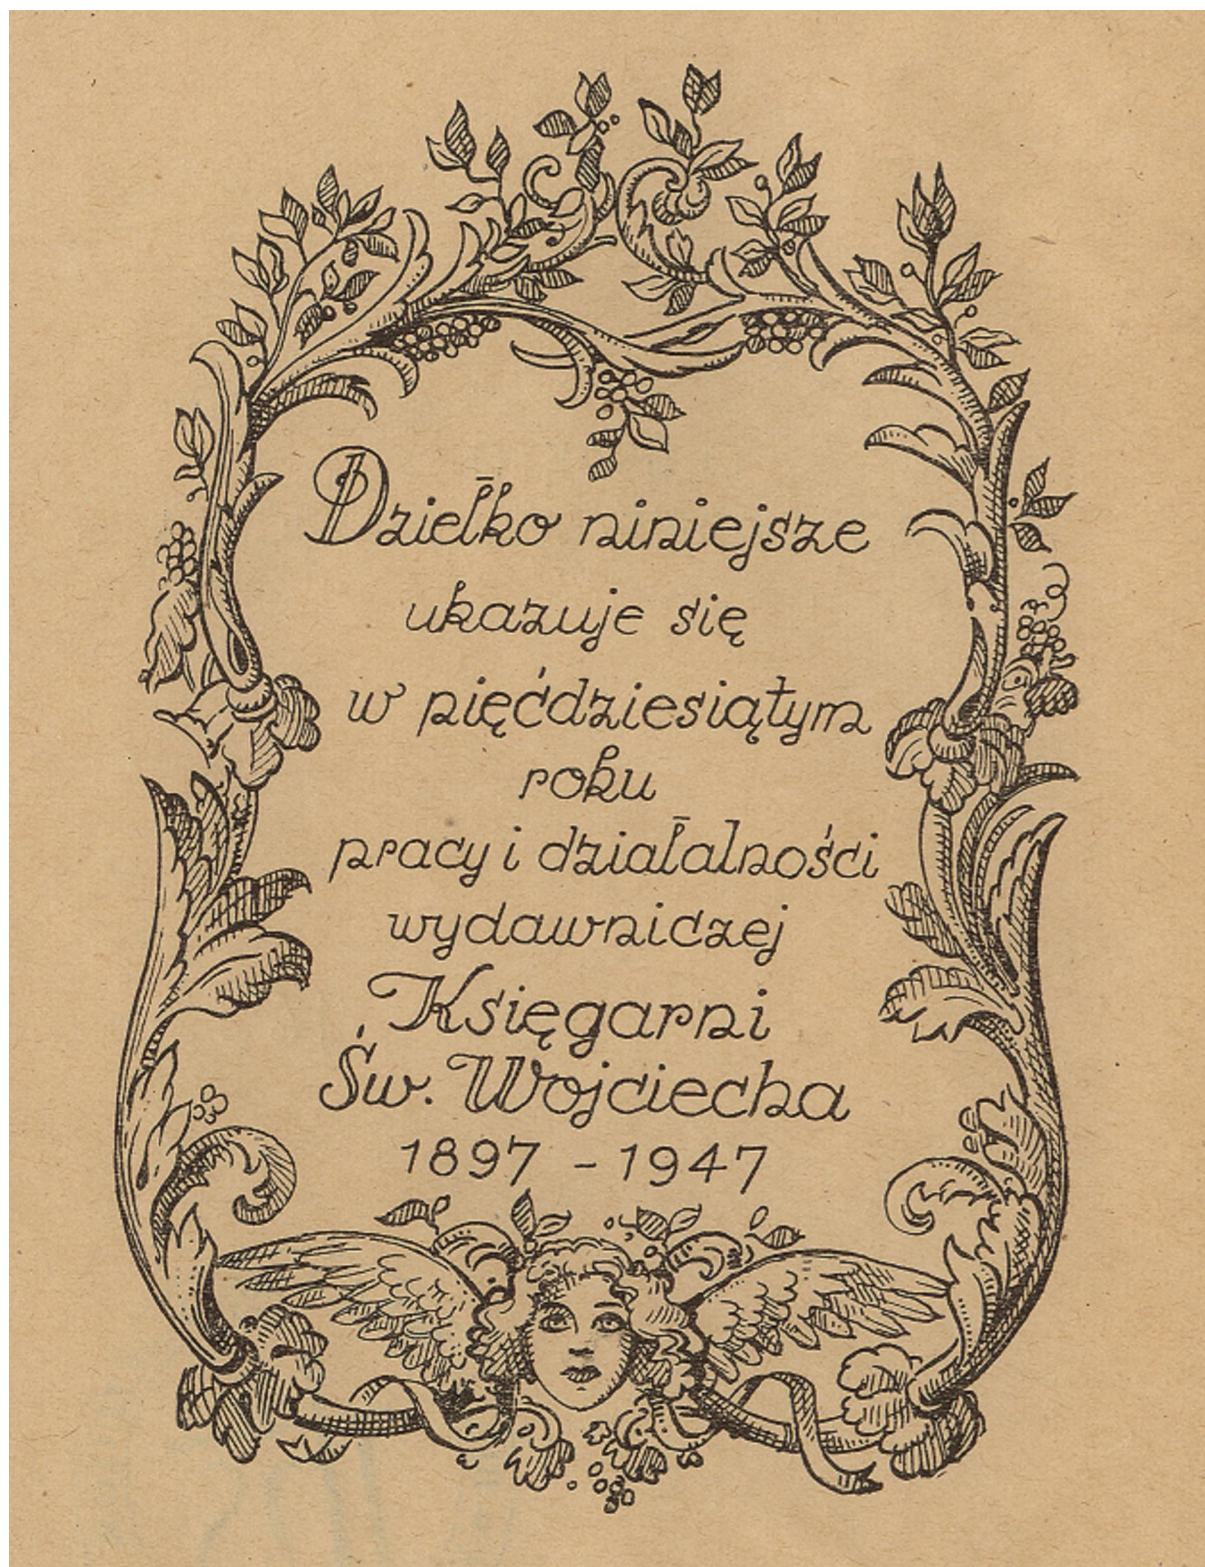 Dziełko niniejsze
ukazuje się
w pięćdziesiątym
roku
pracy i działalności
wydawniczej
Księgarni
Św. Wojciecha
1897 - 1947